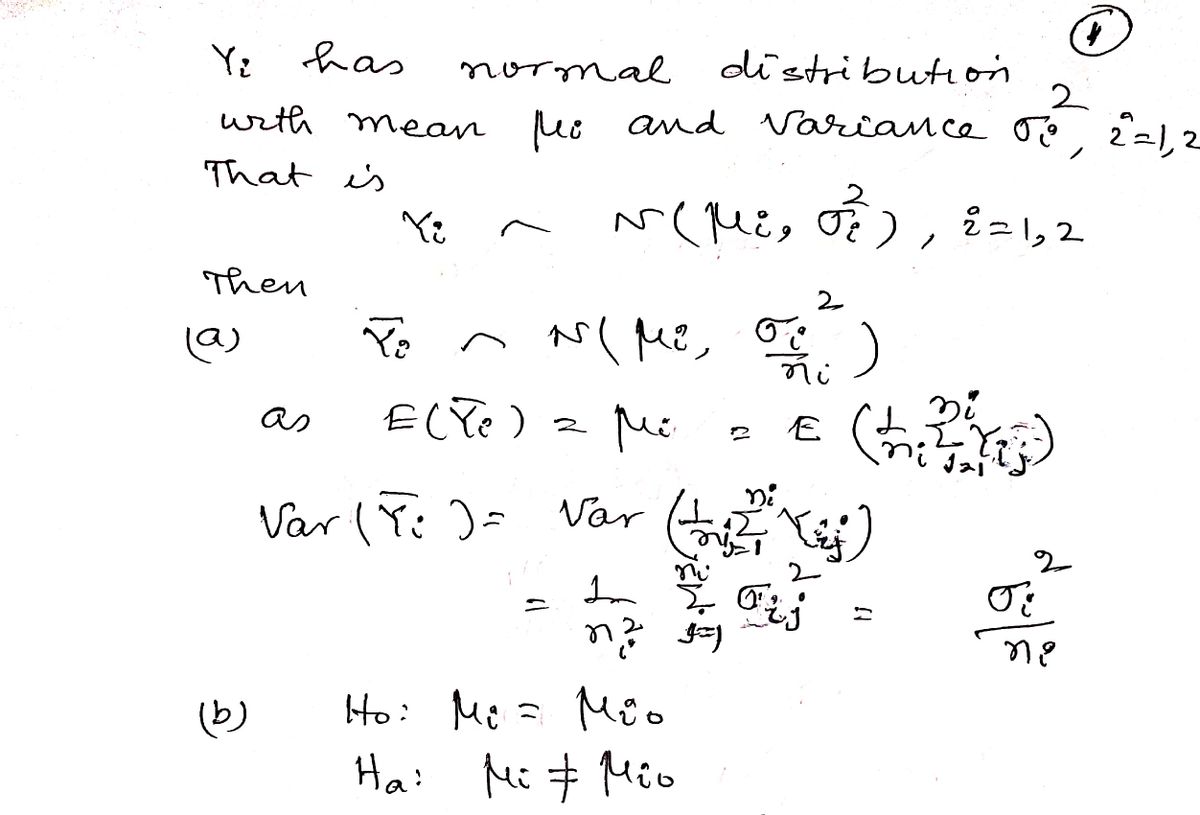 ①
Yi has normal distribution
with mean μi and variance σi², i=1,2
That is
Yi ~ N(μi, σi²), i=1,2
Then
(a) Ȳi ~ N(μi, σi²/ni)
as E(Ȳi) = μi = E(1/ni Σ_{j=1}^{ni} Yij)
Var(Ȳi) = Var(1/ni Σ_{j=1}^{ni} Yij)
= 1/ni² Σ_{j=1}^{ni} σij² = σi²/ni
(b) Ho: μi = μio
Ha: μi ≠ μio